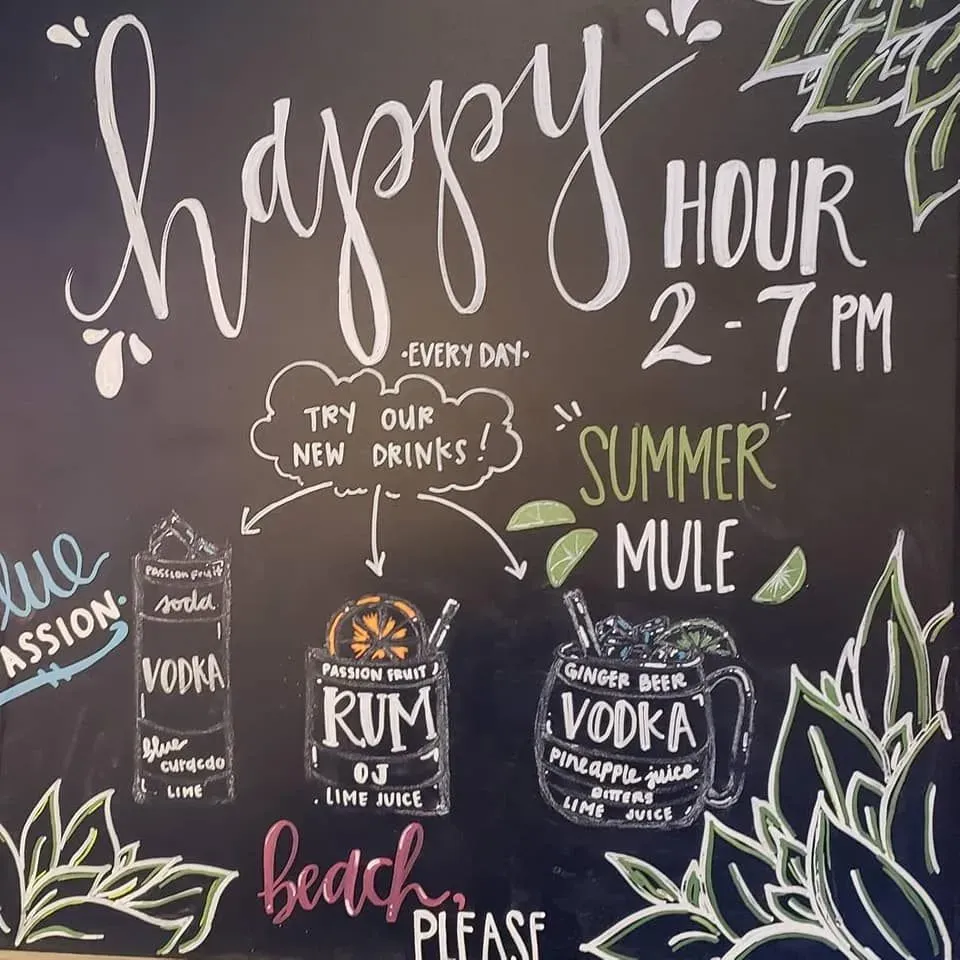 happy
HOUR
2-7 PM
•EVERY DAY•
TRY OUR
NEW DRINKS!
SUMMER
MULE
lue
ASSION.
PASSION fruit
soda
VODKA
blue
curacao
LIME
PASSION FRUIT
RUM
OJ
LIME JUICE
GINGER BEER
VODKA
PINEAPPLE juice
BITTERS
LIME JUICE
beach,
PLEASE